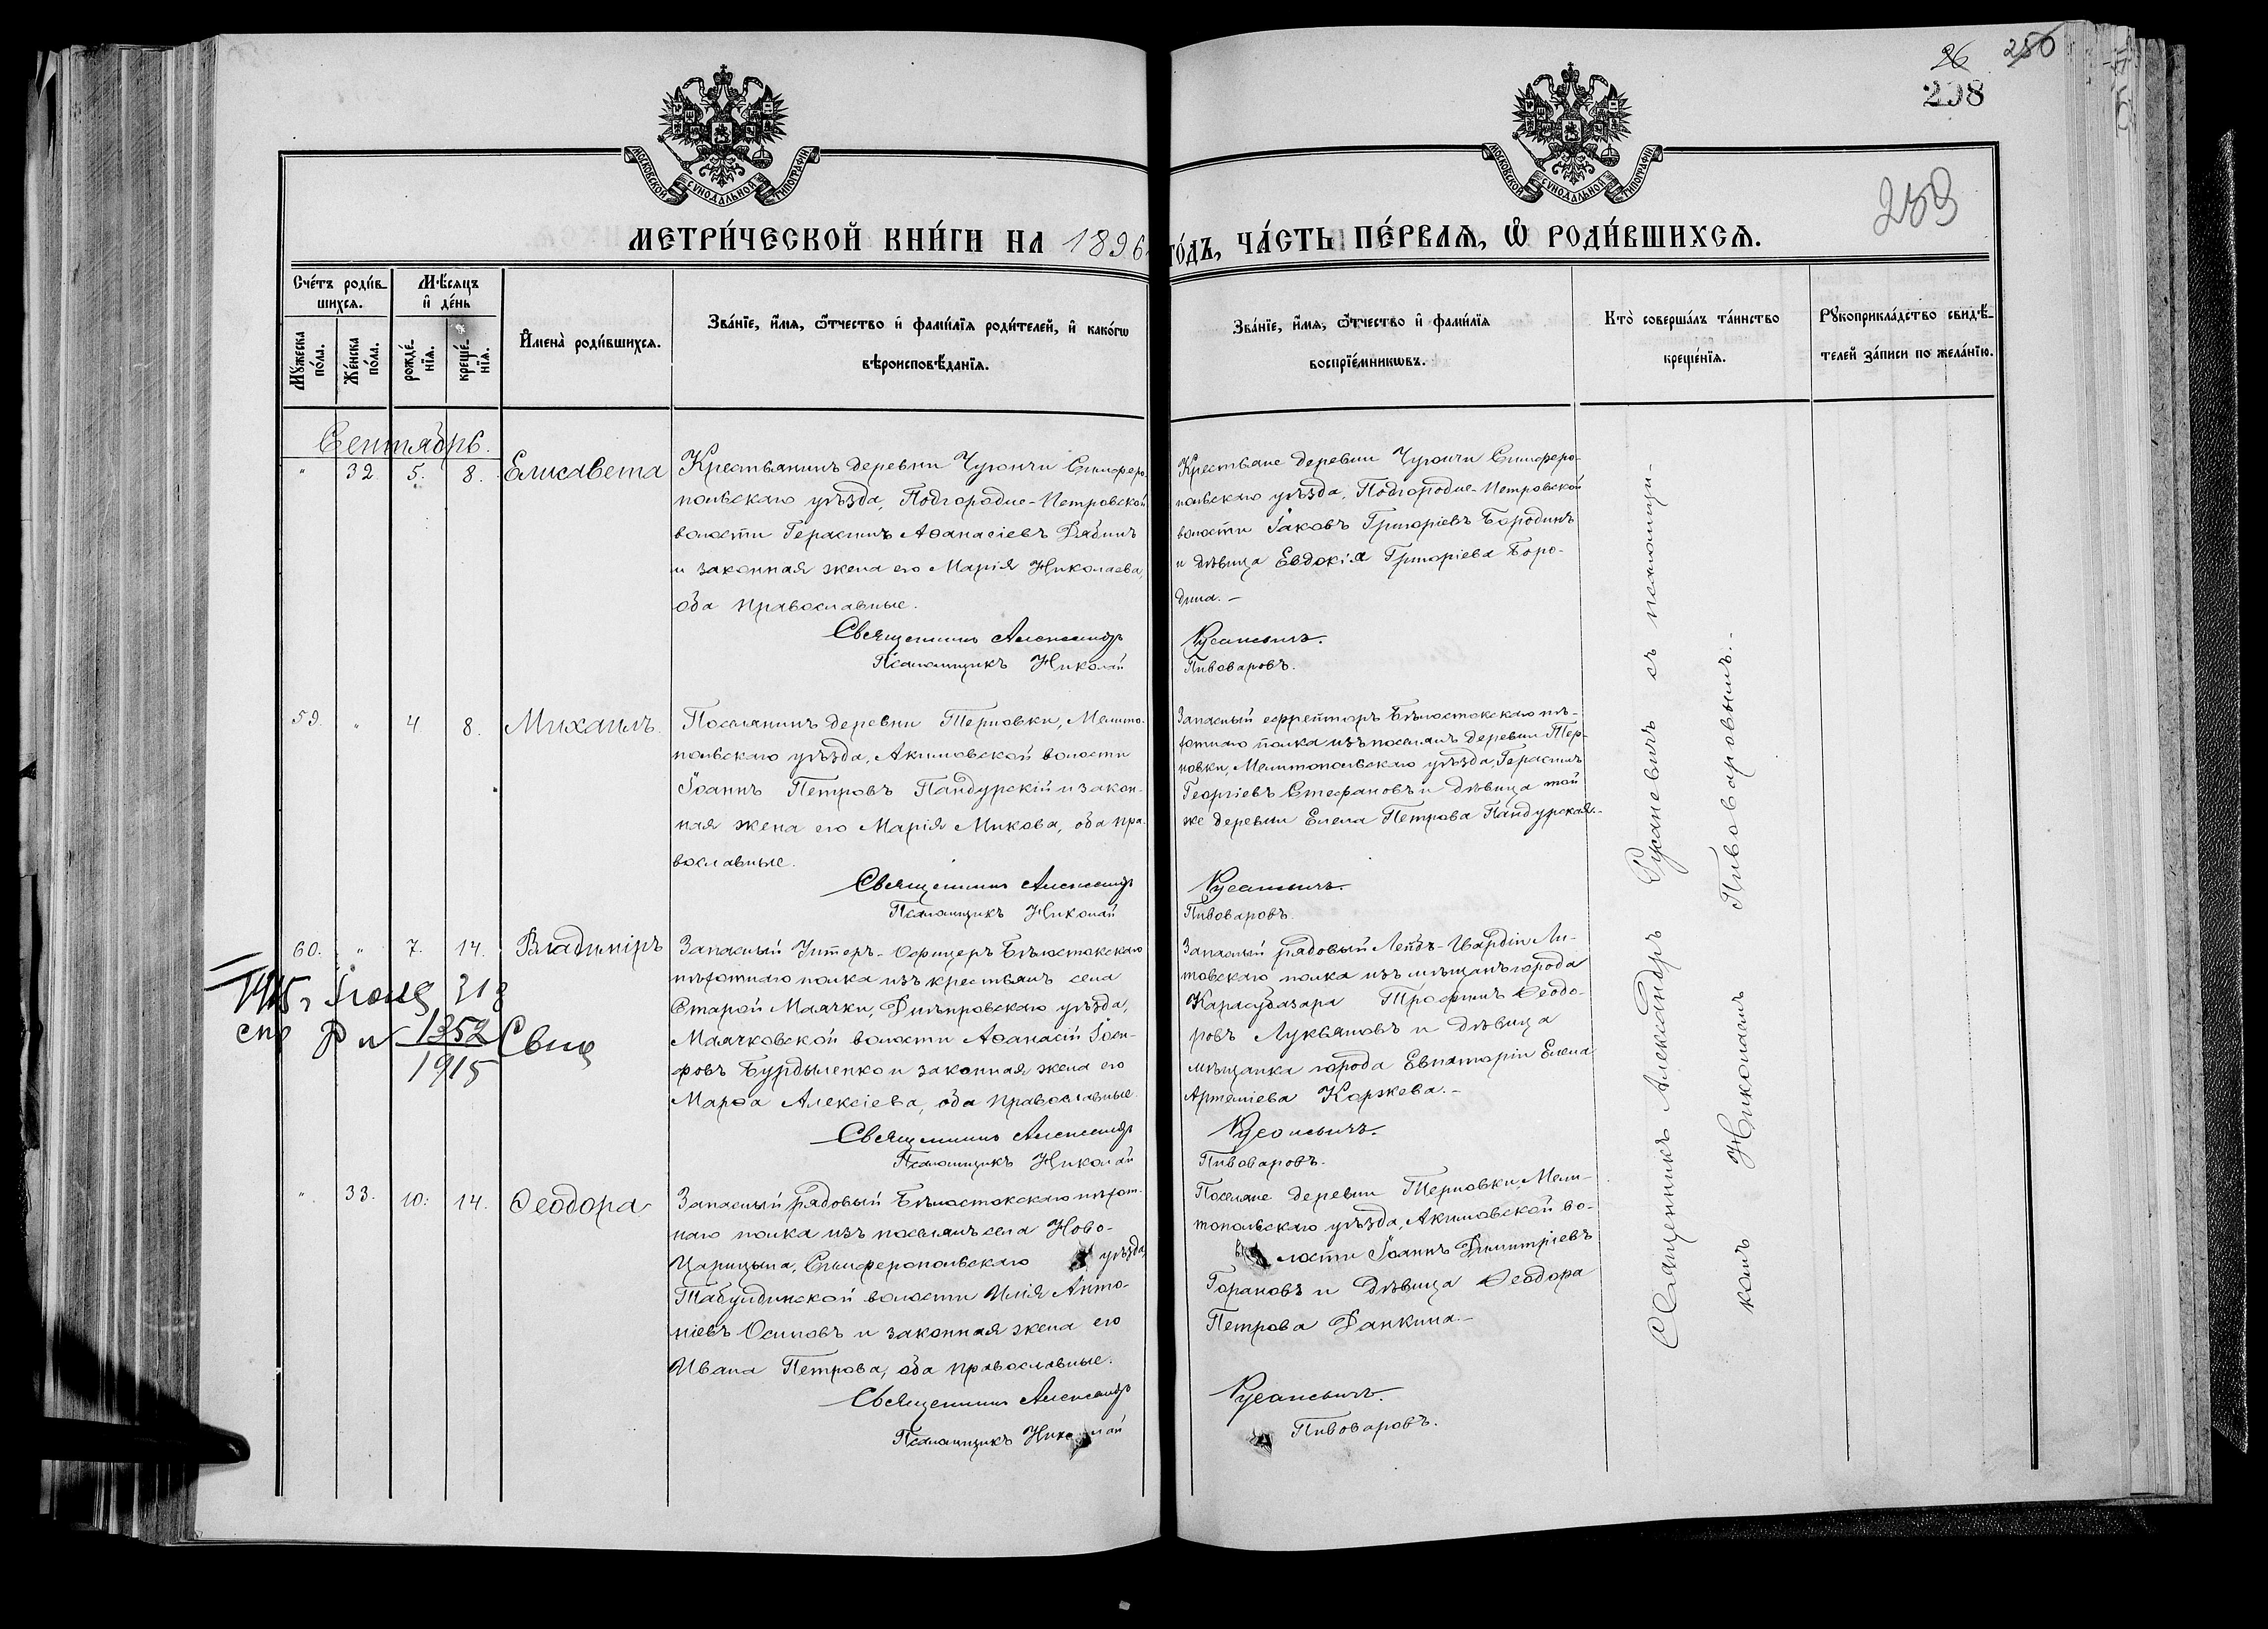 26 250
298
259
МОСКОВСКОЙ СѴНОДАЛЬНОЙ ТИПОГРАФІИ
МОСКОВСКОЙ СѴНОДАЛЬНОЙ ТИПОГРАФІИ
МЕТРИ́ЧЕСКОЙ КНИ́ГИ НА 1896 ГО́ДЪ, ЧА́СТЬ ПЕ́РВАЯ, Ѡ҆ РОДИ́ВШИХСЯ.
Сче́тъ роди́в-
шихся.
Мꙋжеска по́ла.
Же́нска по́ла.
Мѣ́сяцъ и҆ де́нь
рожде́нїя.
креще́нїя.
И҆мена̀ роди́вшихся.
Зва́нїе, и҆́мя, ѻ҆́тчество и҆ фамѝлїя роди́телей, и҆ како́гѡ
вѣроисповѣ́данїя.
Зва́нїе, и҆́мя, ѻ҆́тчество и҆ фамѝлїя
воспрїе́мникѡвъ.
Кто̀ соверша́лъ та́инство
креще́нїя.
Рꙋкоприкла́дство свидѣ́-
телей за́писи по жела́нїю.
Сентябрь.
" 32 5. 8. Елисавета
Крестьянинъ деревни Чуюнчи Симферо-
польскаго уѣзда, Подгородне-Петровской
волости Герасимъ Аѳанасіевъ Рябинъ
и законная жена его Марія Николаева,
оба православные.
Священникъ Александръ
Псаломщикъ Николай
Крестьяне деревни Чуюнчи Симферо-
польскаго уѣзда, Подгородне-Петровской
волости Іаковъ Григоріевъ Бородинъ
и дѣвица Евдокія Григоріева Боро-
дина. –
Русаневичъ.
Пивоваровъ.
59. " 4 8. Михаилъ.
Поселянинъ деревни Терновки, Мелито-
польскаго уѣзда, Акимовской волости
Іоаннъ Петровъ Пандурскій и закон-
ная жена его Марія Микова, оба пра-
вославные.
Священникъ Александръ
Псаломщикъ Николай
Запасный ефрейторъ Бѣлостокскаго пѣ-
хотнаго полка изъ поселянъ деревни Тер-
новки, Мелитопольскаго уѣзда, Герасимъ
Георгіевъ Стефановъ и дѣвица той
же деревни Елена Петрова Пандурская.–
Русаневичъ.
Пивоваровъ.
60. " 7. 14. Владиміръ
Запасный Унтеръ-Офицеръ Бѣлостокскаго
пѣхотнаго полка изъ крестьянъ села
Старой Маячки, Днѣпровскаго уѣзда,
Маячковской волости Аѳанасій Іоси-
фовъ Бурдыленко и законная жена его
Марѳа Алексіева, оба православные.
Священникъ Александръ
Псаломщикъ Николай
Запасный рядовый Лейбъ-Гвардіи Ли-
товскаго полка изъ мѣщанъ города
Карасубазара Трофимъ Ѳеодо-
ровъ Лукьяновъ и дѣвица
мѣщанка города Евпаторіи Елена
Артеміева Коржева. –
Русаневичъ.
Пивоваровъ.
1915 г Іюля 31 д
1352
1915
". 33. 10. 14. Ѳеодора
Запасный рядовый Бѣлостокскаго пѣхот-
наго полка изъ поселянъ села Ново-
Царицына, Симферопольскаго уѣзда,
Табулдинской волости Илія Анто-
ніевъ Осиповъ и законная жена его
Ивана Петрова, оба православные.
Священникъ Александръ
Псаломщикъ Николай
Поселяне деревни Терновки, Мели-
топольскаго уѣзда, Акимовской во-
лости Іоаннъ Димитріевъ
Горановъ и дѣвица Ѳеодора
Петрова Данкина. –
Русаневичъ.
Пивоваровъ.
Священникъ Александръ Русаневичъ съ псаломщи-
комъ Николаемъ Пивоваровымъ. –